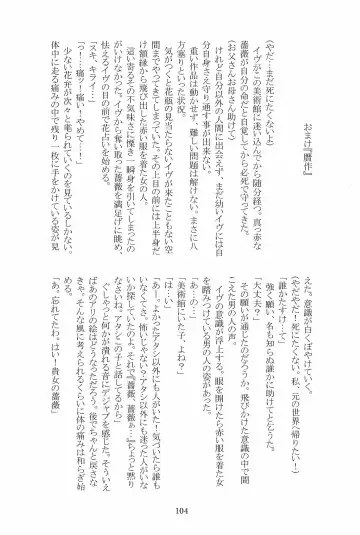 おまけ『贋作』
（やだ…まだ死にたくないよ）
イヴがこの美術館に迷い込んでから随分経つ。真っ赤な
薔薇が自分の命だと自覚してから必死で守ってきた。
（お父さんお母さん助けて）
けれど自分以外の人間に出会えず、まだ幼いイヴには自
分自身さえ守り通す事が出来ない。
重い作品は動かせず、難しい問題は解けない。まさに八
方塞りといった状況。
気がつくと花瓶の見当たらないイヴが見当たらない空
間までやってきてしまっていた。その上目の前には上半身だ
け額縁から飛び出した赤い服を着た女の人。
這い寄るその不気味さに慄き一瞬身を引いてしまったの
がいけなかった。イヴから奪い取った薔薇を満足げに眺め、
怯えるイヴの目の前で花占いを始める。
「スキ、キライ…」
「っ…痛ッ！痛い！やめて…！」
少ない花弁が次々と毟られていくのを見ているしかない。
体中に走る痛みの中で残り一枚に手をかけている姿が見
えた。意識が白くぼやけていく。
（やだやだ！死にたくない。私、元の世界へ帰りたい！）
「誰かたすけ…て」
強く願い、名も知らぬ誰かに助けてとをとなう。
その願いが通じたのだろうか。飛びかけた意識の中で聞
こえた男の人の声。
「大丈夫？」
イヴの意識が浮上する。眼を開けたら赤い服を着た女
を踏みつけている男の人の姿があった。
「あ…の…」
「美術館にいた子、よね？」
「は…い」
「あー。よかったアタシ以外にも人がいた！気づいたら誰も
いなくてさ、怖いじゃない？アタシ以外にも迷った人がいな
いか探していたのよ。それで『薔薇、薔薇ぁ…』ちょっと黙り
なさいね。アタシこの子と話してるから」
ぐしゃっと何かが潰れる音にデジャブを感じた。そういえ
ばあのアリの絵はどうなっただろう。後でちゃんと戻さな
きゃ。そんな風に考えられるくらいに体の痛みは和らぎ始
める。
「あ。忘れてたわ。はい！貴女の薔薇」
104